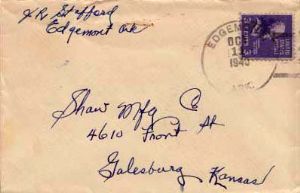 HR Stafford
Edgemont Ark
EDGEMONT
OC
1940
ARK.
Shaw Mfg Co
4610 Front St
Galesburg Kansas